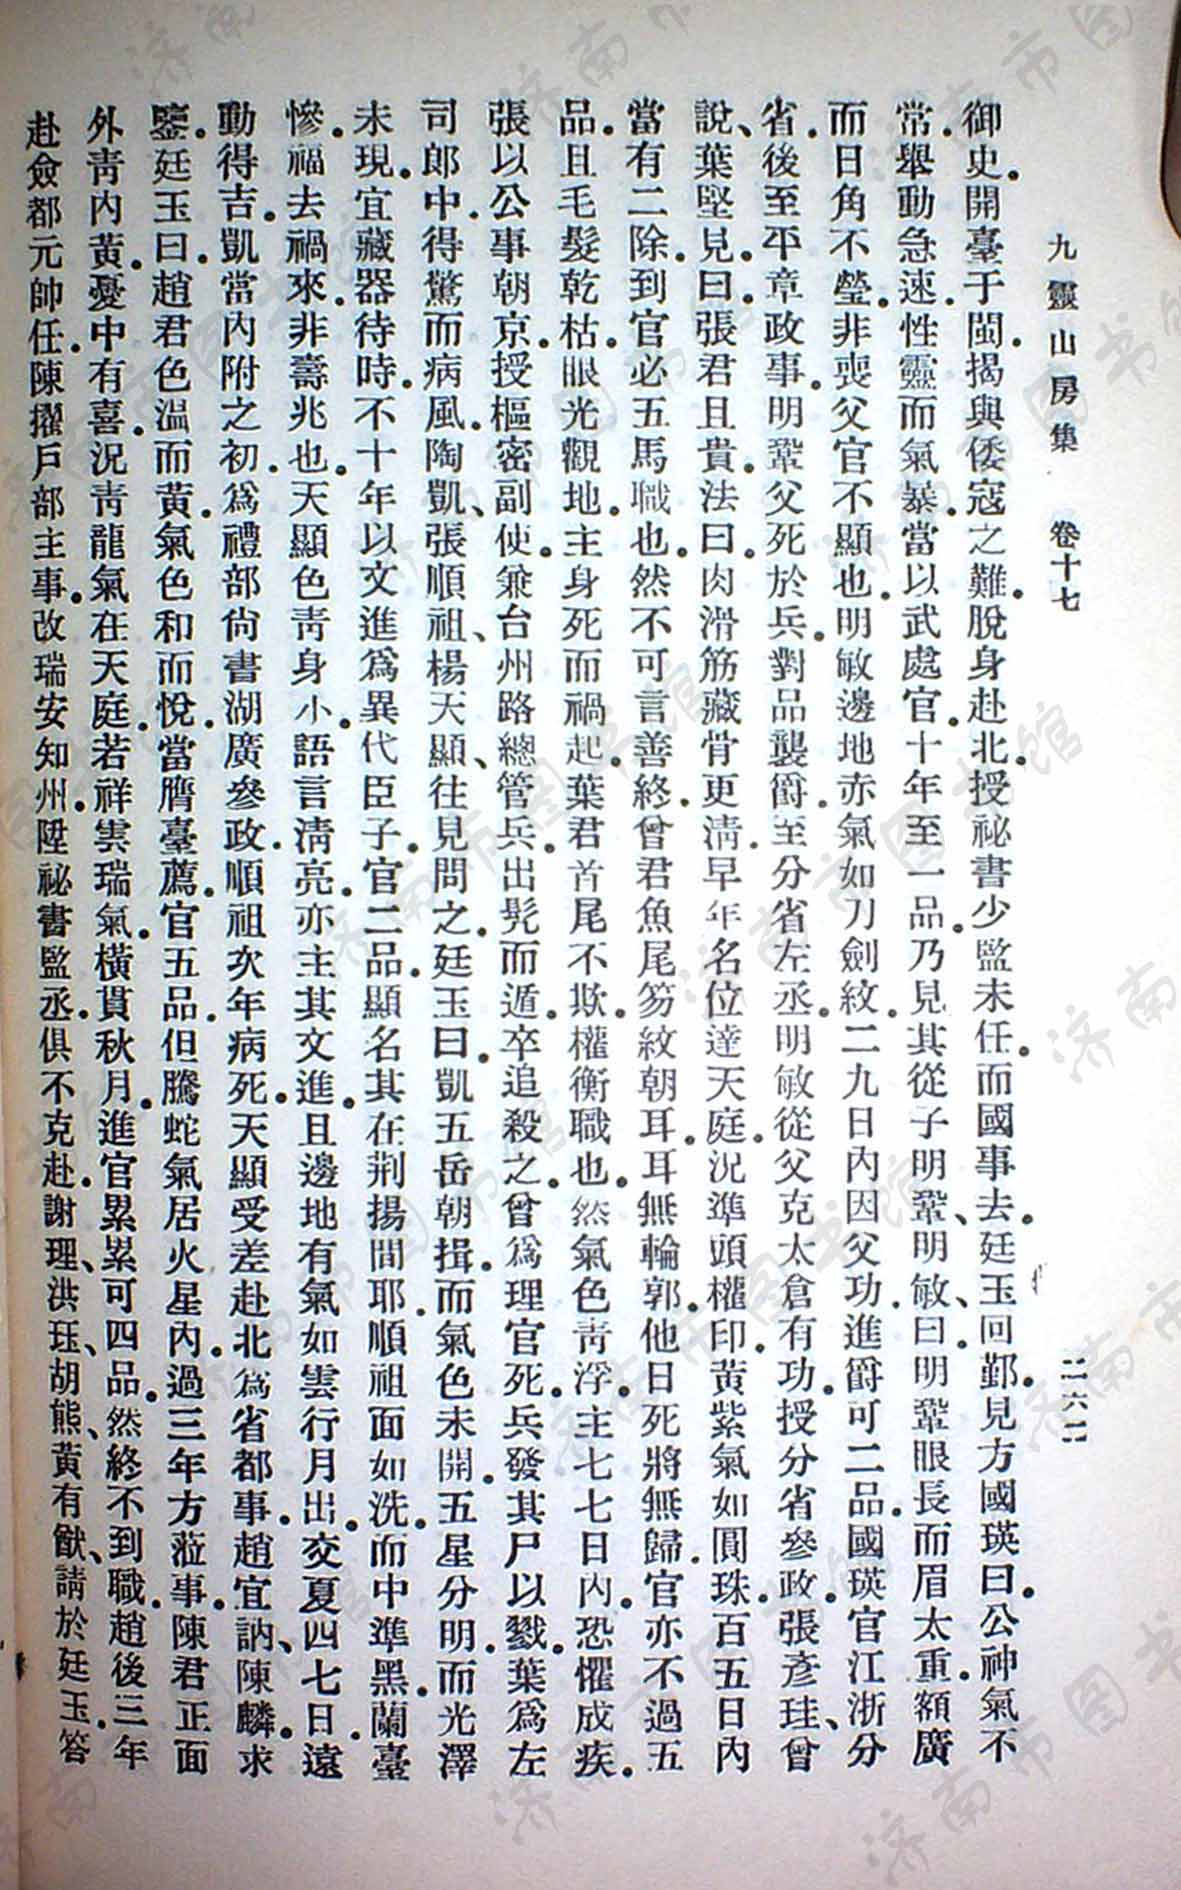 九靈山房集　卷十七　二六二
御史。開臺于閩。揭與倭寇之難。脫身赴北。授祕書少監未任。而國事去。廷玉回鄞。見方國瑛曰。公神氣不
常。舉動急速。性靈而氣暴。當以武處官。十年至一品。乃見其從子明鞏、明敏、曰。明鞏眼長而眉太重。額廣
而日角不瑩。非喪父官不顯也。明敏邊地赤氣如刀劍紋。二九日內因父功。進爵可二品。國瑛官江浙分
省。後至平章政事。明鞏父死於兵。對品襲爵。至分省左丞。明敏從父克太倉有功。授分省參政。張彥珪、曾
說、葉堅見。曰。張君且貴。法曰。肉滑筋藏骨更淸。早年名位達天庭。況準頭權印。黃紫氣如圓珠。百五日內
當有二除。到官必五馬職也。然不可言善終。曾君魚尾笏紋朝耳。耳無輪郭。他日死將無歸。官亦不過五
品。且毛髮乾枯。眼光觀地。主身死而禍起。葉君首尾不欺。權衡職也。然氣色靑浮。主七七日內。恐懼成疾。
張以公事朝京。授樞密副使。兼台州路總管兵。出髡而遁。卒追殺之。曾爲理官死。兵發其尸以戮。葉爲左
司郎中。得驚而病風。陶凱、張順祖、楊天顯、往見問之。廷玉曰。凱五岳朝揖。而氣色未開。五星分明。而光澤
未現。宜藏器待時。不十年以文進爲異代臣子。官二品。顯名其在荆揚間耶。順祖面如洗。而中準黑。蘭臺
慘。福去禍來。非壽兆也。天顯色靑身小。語言淸亮。亦主其文進。且邊地有氣如雲行月出。交夏四七日。遠
動得吉。凱當內附之初。爲禮部尙書。湖廣參政。順祖次年病死。天顯受差赴北。爲省都事。趙宜訥、陳麟。求
鑒。廷玉曰。趙君色溫而黃。氣色和而悅。當膺臺薦。官五品。但騰蛇氣居火星內。過三年方蒞事。陳君正面
外靑內黃。憂中有喜。況靑龍氣在天庭。若祥雲瑞氣。橫貫秋月。進官累累可四品。然終不到職。趙後三年
赴僉都元帥任。陳擢戶部主事。改瑞安知州。陞祕書監丞。俱不克赴。謝理、洪珏、胡熊、黃有猷、請於廷玉。答